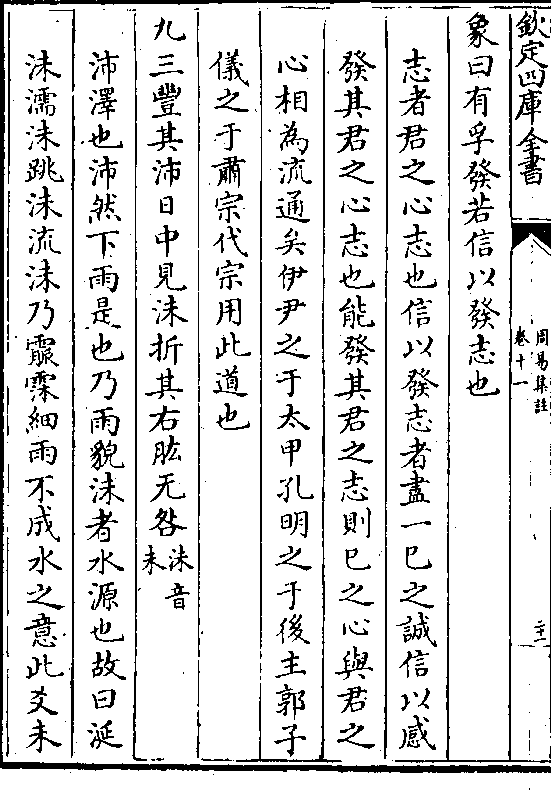 欽定四庫全書
周易集註
卷十一
象曰有孚發若信以發志也
志者君之心志也信以發志者盡一巳之誠信以感
發其君之心志也能發其君之志則巳之心與君之
心相為流通矣伊尹之于太甲孔明之于後主郭子
儀之于肅宗代宗用此道也
九三豐其沛日中見沬折其右肱无咎沬音未
沛澤也沛然下雨是也乃雨貌沬者水源也故曰涎
沬濡沬跳沬流沬乃霢霂細雨不成水之意此爻未